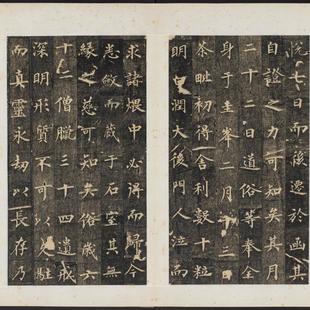 悅七日而後遷於函其
自證之力可知矣其月
二十二日道俗等奉全
身于圭峯二月十三日
茶毗初得舍利數十粒
明白潤大後門人泣而
求諸煨中必得而歸今
悉斂而藏于石室其無
緣之慈可知矣俗歲六
十二僧臘三十四遺戒
深明形質不可以久駐
而真靈永劫以長存乃